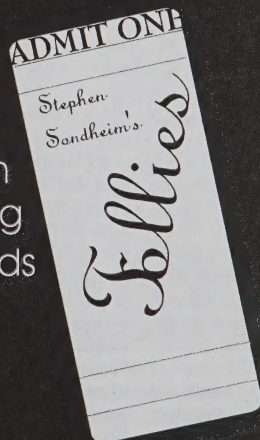 ADMIT ONE
Stephen
Sondheim's
Follies